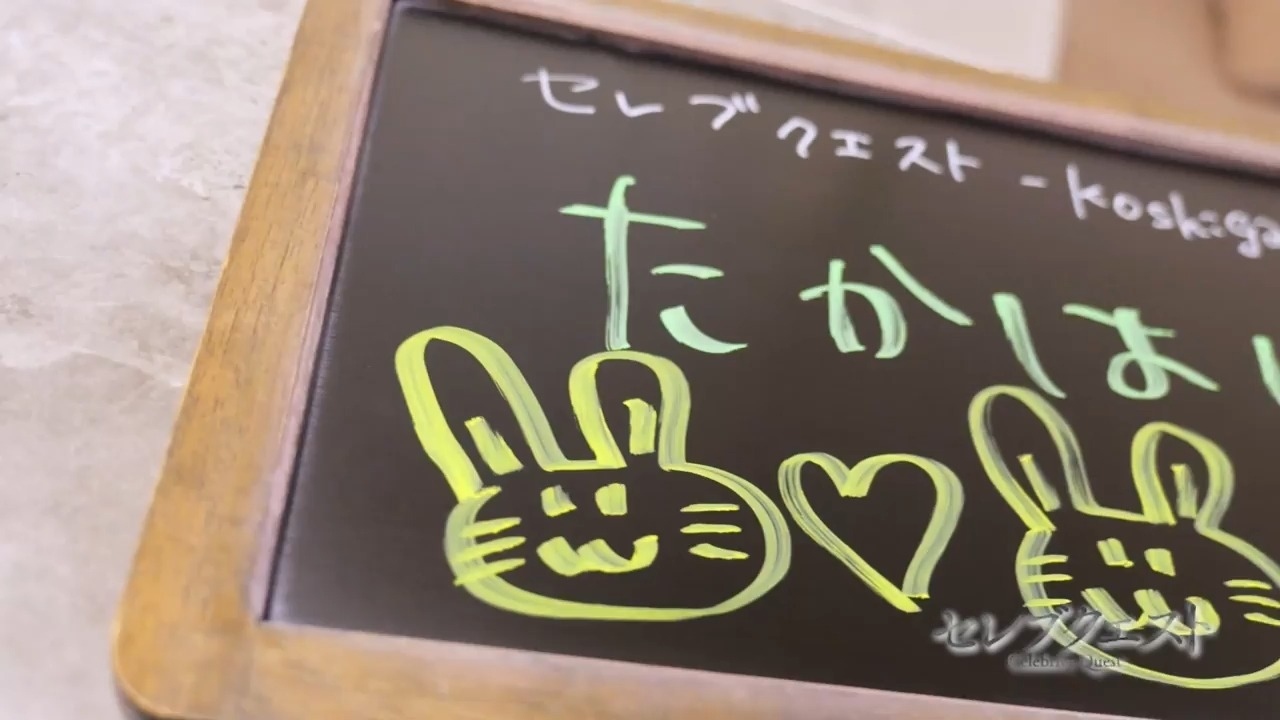 セレブクエスト - koshiga
たかはし
セレブクエスト
Celebrity Quest